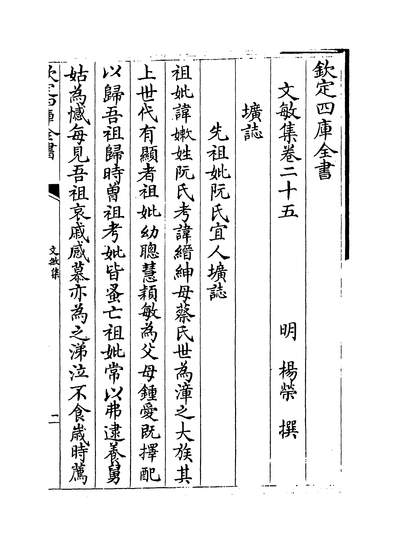 欽定四庫全書
文敏集卷二十五
明 楊榮 撰
壙誌
先祖妣阮氏宜人壙誌
祖妣諱嫩姓阮氏考諱縉紳母蔡氏世為漳之大族其
上世代有顯者祖妣幼聰慧穎敏為父母鍾愛既擇配
以歸吾祖歸時曽祖考妣皆蚤亡祖妣常以弗逮養舅
姑為憾每見吾祖哀戚感慕亦為之涕泣不食嵗時薦
欽定四庫全書
文敏集